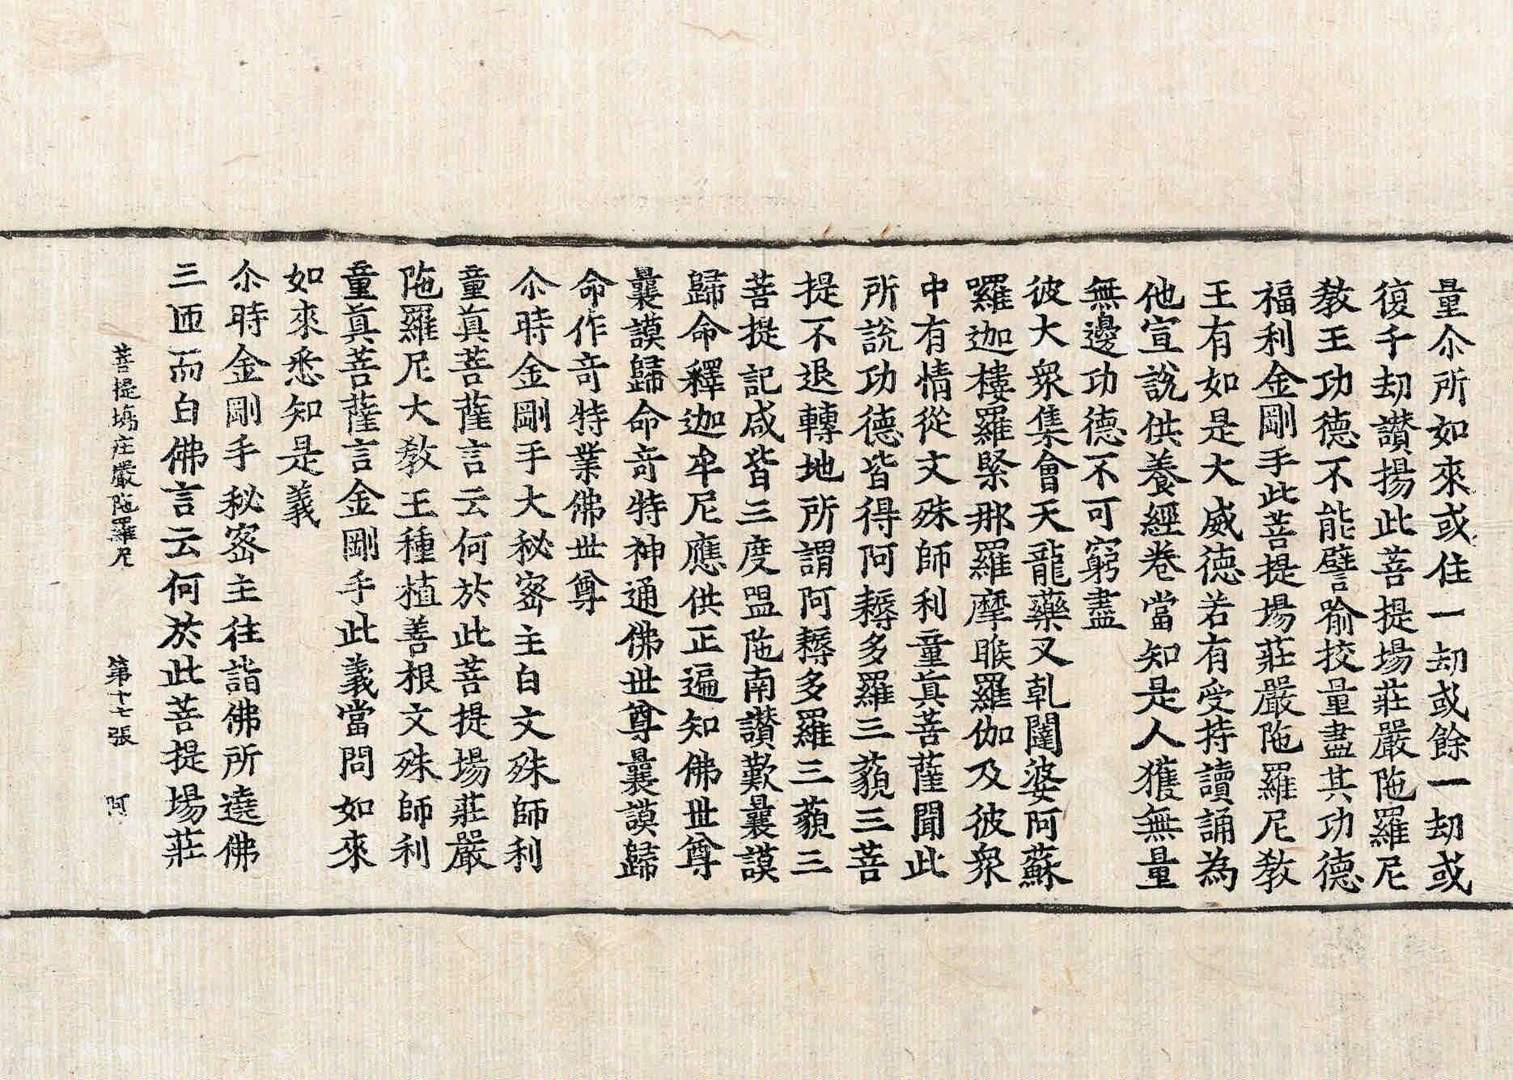 量尒所如來或住一劫或餘一劫或
復千劫讃揚此菩提場莊嚴陁羅尼
教王功德不能譬喻挍量盡其功德
福利金剛手此菩提場莊嚴陁羅尼教
王有如是大威德若有受持讀誦為
他宣說供養經卷當知是人獲無量
無邊功德不可窮盡
彼大衆集會天龍藥叉乹闥婆阿蘇
囉迦樓羅緊那羅摩睺羅伽及彼衆
中有情從文殊師利童真菩薩聞此
所說功德皆得阿耨多羅三藐三菩
提不退轉地所謂阿耨多羅三藐三
菩提記咸皆三度昷陁南讃歎曩謨
歸命釋迦牟尼應供正遍知佛世尊
曩謨歸命奇特神通佛世尊曩謨歸
命作奇特業佛世尊
尒時金剛手大秘密主白文殊師利
童真菩薩言云何於此菩提場莊嚴
陁羅尼大教王種植善根文殊師利
童真菩薩言金剛手此義當問如來
如來悉知是義
尒時金剛手秘密主往詣佛所遶佛
三匝而白佛言云何於此菩提場莊
菩提場庄嚴陁羅尼 第十七張 阿